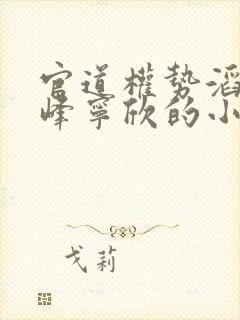 官道權勢滔
峰寧欣的小
戈莉